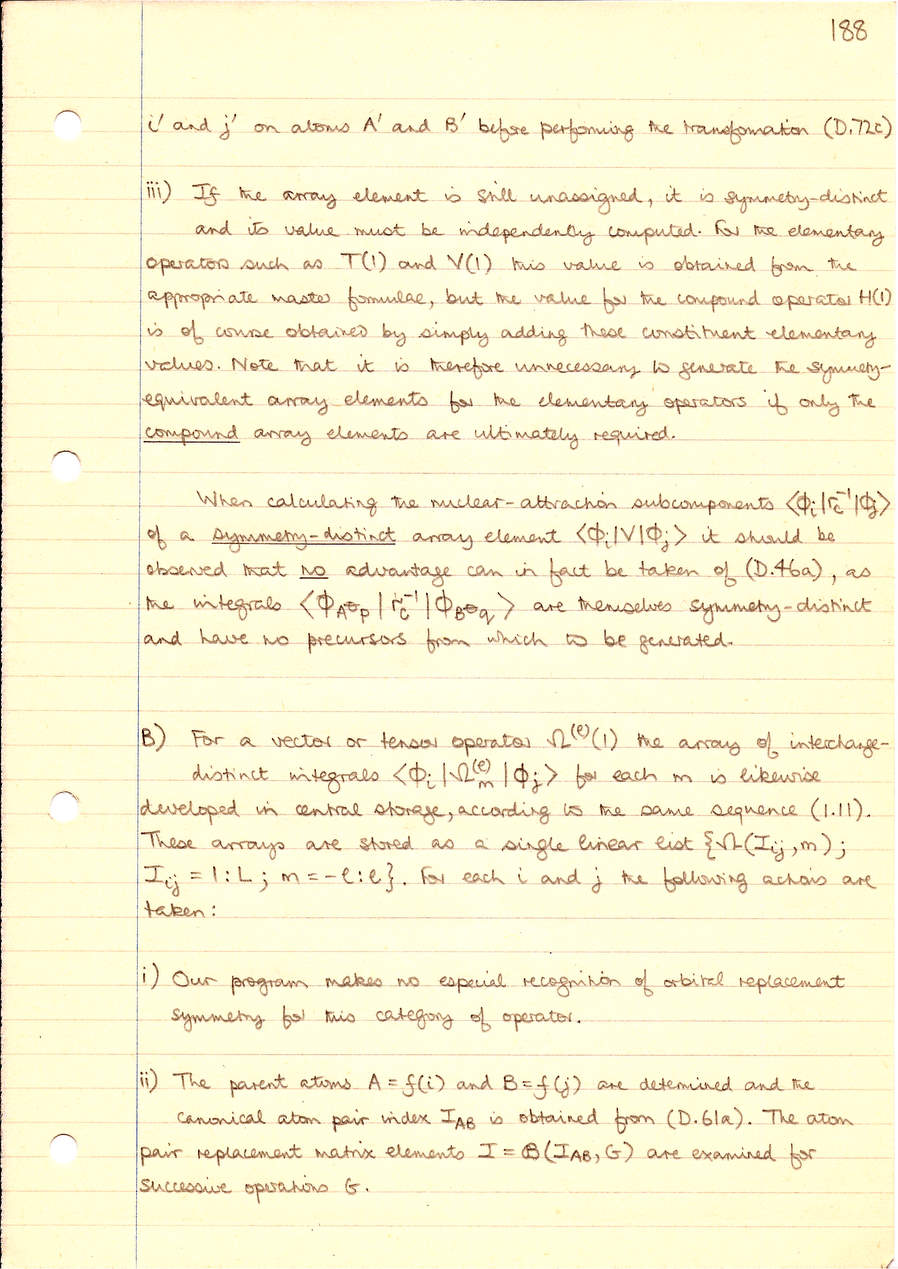 188
i' and j' on atoms A' and B' before performing the transformation (D.72c)
iii) If the array element is still unassigned, it is symmetry-distinct
and its value must be independently computed. For the elementary
operators such as T(1) and V(1) this value is obtained from the
appropriate master formulae, but the value for the compound operator H(1)
is of course obtained by simply adding these constituent elementary
values. Note that it is therefore unnecessary to generate the symmetry-
equivalent array elements for the elementary operators if only the
compound array elements are ultimately required.
When calculating the nuclear-attraction subcomponents ⟨ϕᵢ|r_c⁻¹|ϕⱼ⟩
of a symmetry-distinct array element ⟨ϕᵢ|V|ϕⱼ⟩ it should be
observed that no advantage can in fact be taken of (D.46a), as
the integrals ⟨ϕ_Aσp|r_c⁻¹|ϕ_Bσq⟩ are themselves symmetry-distinct
and have no precursors from which to be generated.
B) For a vector or tensor operator Ω⁽ˡ⁾(1) the array of interchange-
distinct integrals ⟨ϕᵢ|Ω⁽ˡ⁾ₘ|ϕⱼ⟩ for each m is likewise
developed in central storage, according to the same sequence (1.11).
These arrays are stored as a single linear list {Ω(Iᵢⱼ,m);
Iᵢⱼ = 1:L; m = -ℓ:ℓ}. For each i and j the following actions are
taken:
i) Our program makes no especial recognition of orbital replacement
symmetry for this category of operator.
ii) The parent atoms A = f(i) and B = f(j) are determined and the
canonical atom pair index I_AB is obtained from (D.61a). The atom
pair replacement matrix elements I = B(I_AB,G) are examined for
successive operations G.